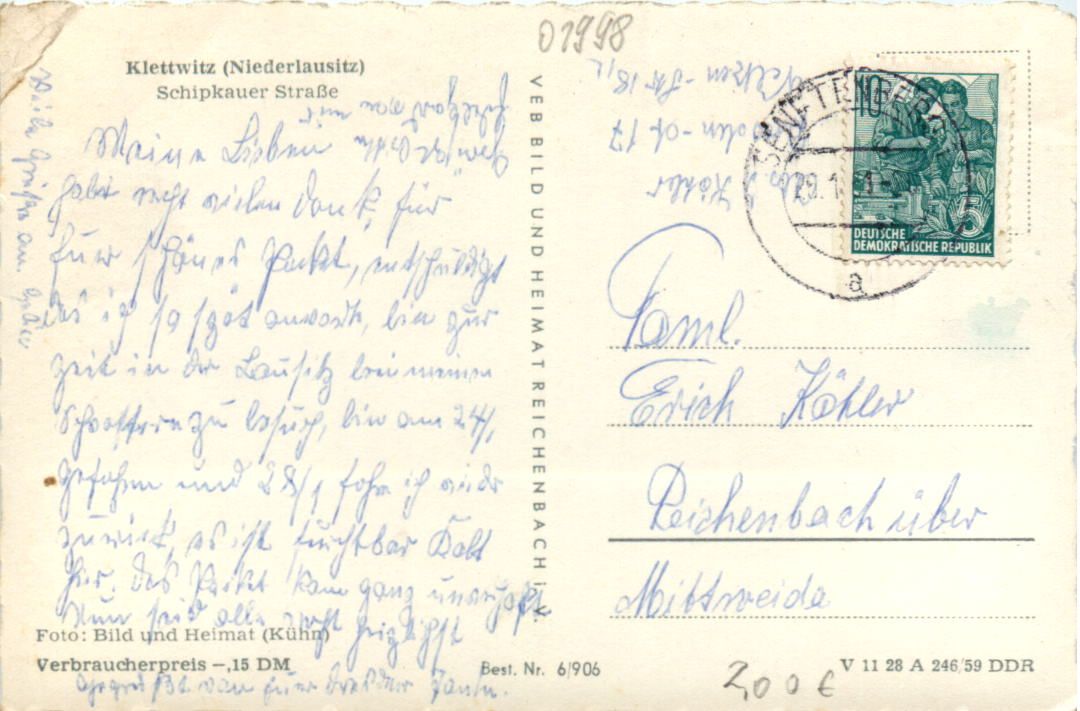 01998
Klettwitz (Niederlausitz)
Schipkauer Straße
Meine Lieben
habt recht vielen Dank, für
Euer schönes Packet, entschuldigt
das ich so spät antworte, bin zur
Zeit in der Lausitz bei meinen
zu besuch, bin am 24/1
gefahren und 28/1 fahre ich wieder
zurück, es ist furchtbar Kalt
hier. Das Packet kam ganz unverhofft
Nun seid alle recht herzlichst
gegrüßt von Eurer Dresdner Tante.
Viele Grüße an
VEB BILD UND HEIMAT REICHENBACH i. V.
Foto: Bild und Heimat (Kühn)
Verbraucherpreis –,15 DM
Best. Nr. 6/906
Köhler
SENFTENBERG
29. 1
a
10
5
DEUTSCHE
DEMOKRATISCHE REPUBLIK
Faml.
Erich Köhler
Reichenbach über
Mittweida
2,00 €
V 11 28 A 246/59 DDR